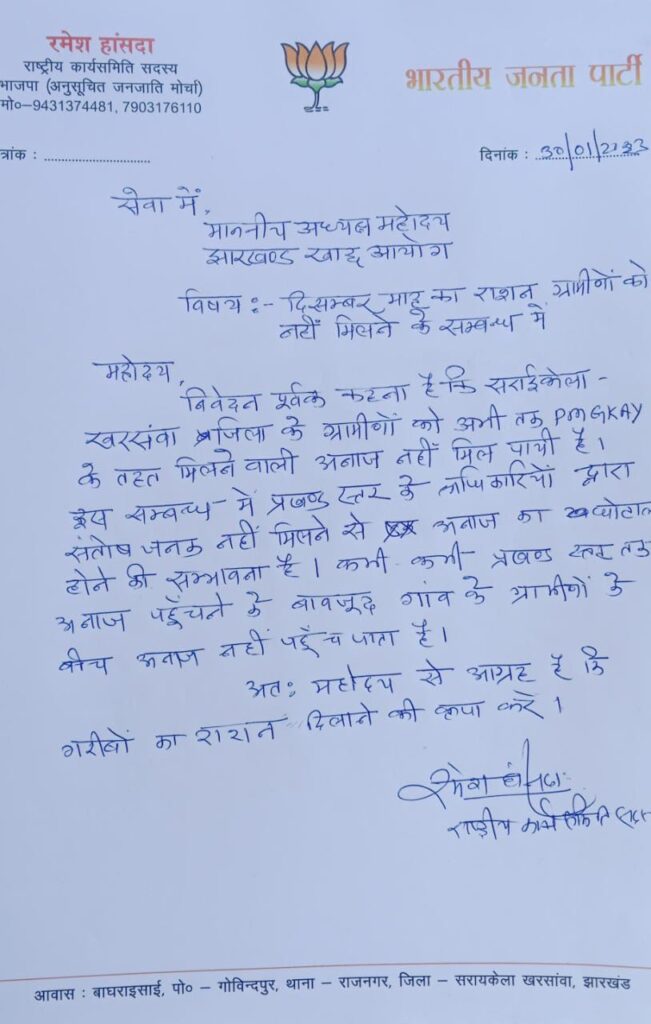 रमेश हांसदा
राष्ट्रीय कार्यसमिति सदस्य
भाजपा (अनुसूचित जनजाति मोर्चा)
मो०–9431374481, 7903176110
भारतीय जनता पार्टी
त्रांक : ..............................
दिनांक : 30/01/2023
सेवा में,
माननीय अध्यक्ष महोदय
झारखण्ड खाद्य आयोग
विषय :- दिसम्बर माह का राशन ग्रामीणों को
नहीं मिलने के सम्बन्ध में
महोदय,
निवेदन पूर्वक कहना है कि सराईकेला -
खरसंवा जिला के ग्रामीणों को अभी तक PMGKAY
के तहत मिलने वाली अनाज नहीं मिल पायी है।
इस सम्बन्ध में प्रखण्ड स्तर के अधिकारियों द्वारा
संतोष जनक नहीं मिलने से अनाज का
होने की सम्भावना है। कभी कभी प्रखण्ड स्तर तक
अनाज पहुँचने के बावजूद गांव के ग्रामीणों के
बीच अनाज नहीं पहुँच पाता है।
अतः महोदय से आग्रह है कि
गरीबों का राशन दिलाने की कृपा करें।
रमेश हांसदा
राष्ट्रीय कार्य समिति सदस्य
आवास : बाघराइसाई, पो० – गोविन्दपुर, थाना – राजनगर, जिला – सरायकेला खरसांवा, झारखंड